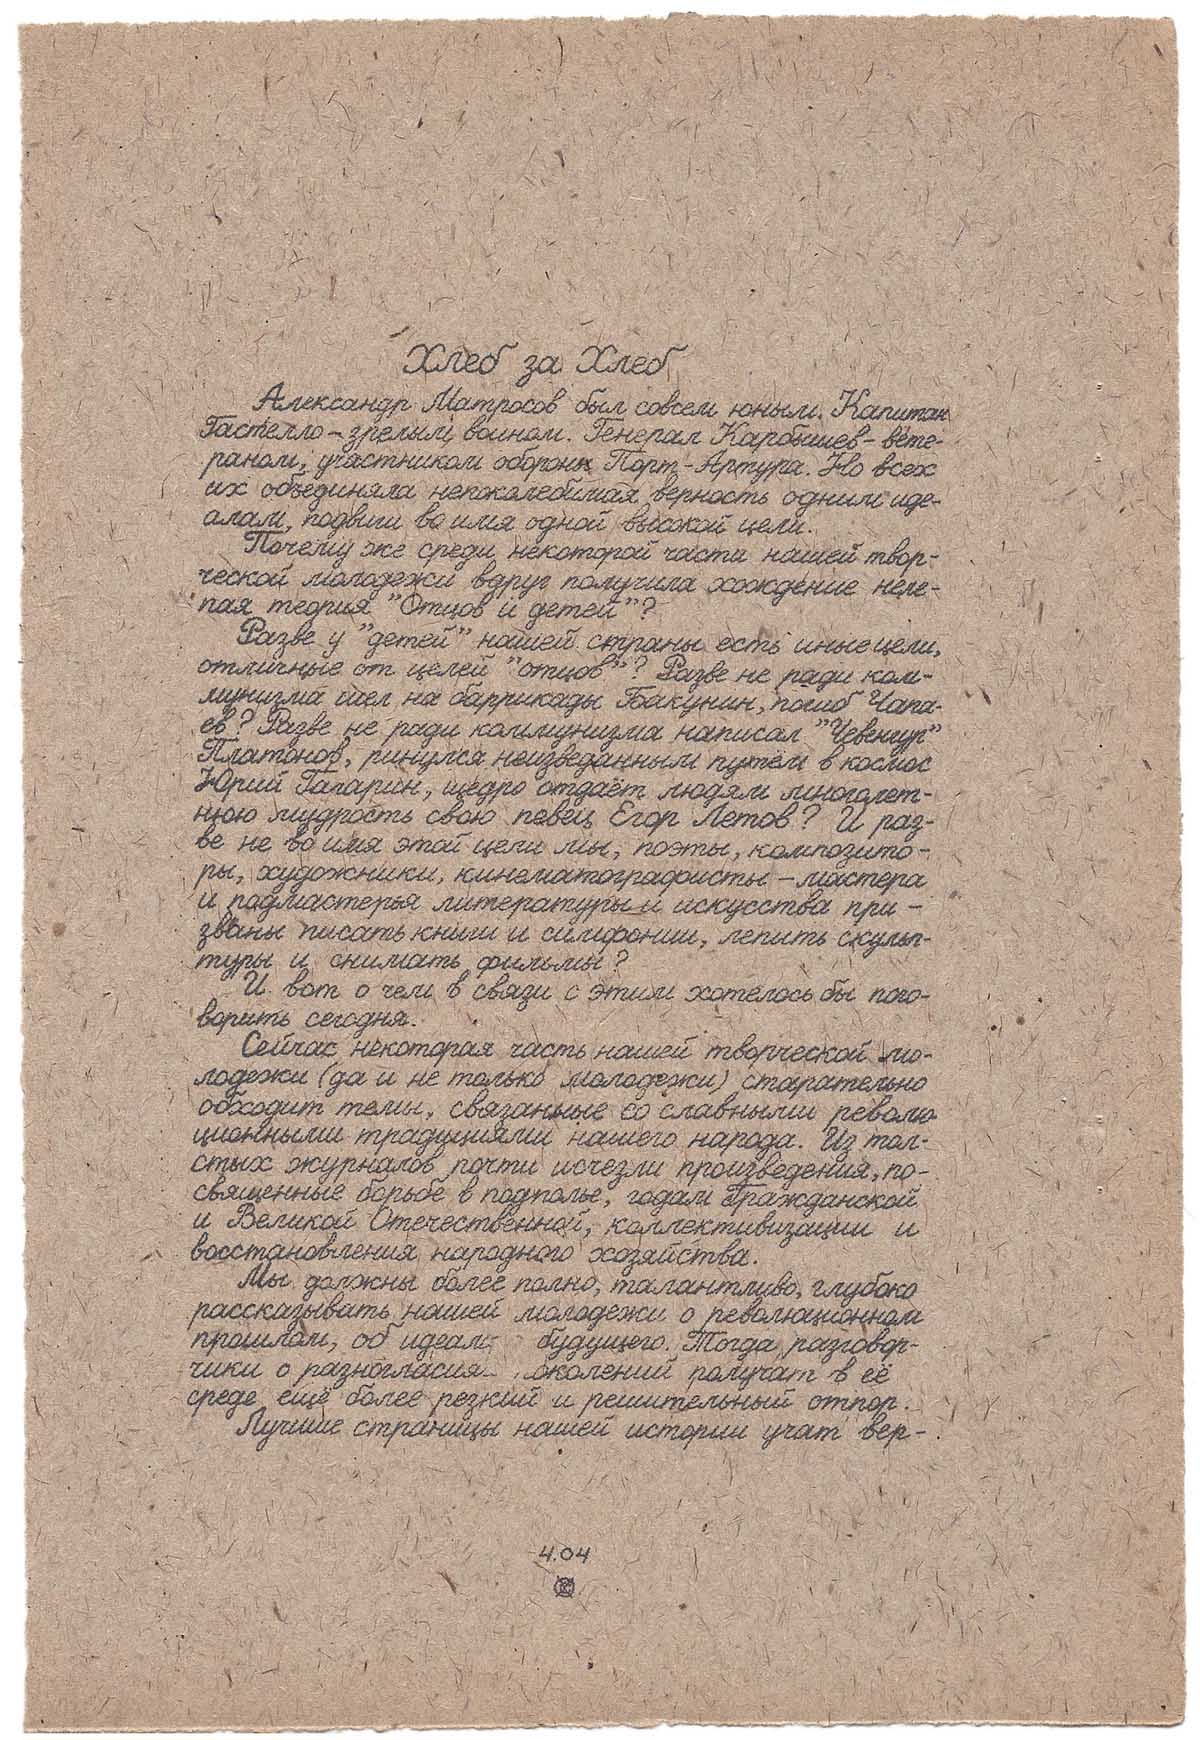 Хлеб за Хлеб
Александр Матросов был совсем юным. Капитан
Гастелло – зрелым воином. Генерал Карбышев – вете-
раном, участником обороны Порт-Артура. Но всех
их объединяла непоколебимая верность одним иде-
алам, подвиги во имя одной высокой цели.
Почему же среди некоторой части нашей твор-
ческой молодежи вдруг получила хождение неле-
пая теория "Отцов и детей"?
Разве у "детей" нашей страны есть иные цели,
отличные от целей "отцов"? Разве не ради ком-
мунизма шел на баррикады Бакунин, погиб Чапа-
ев? Разве не ради коммунизма написал "Чевенгур"
Платонов, ринулся неизведанным путём в космос
Юрий Гагарин, щедро отдаёт людям многолет-
нюю мудрость свою певец Егор Летов? И раз-
ве не во имя этой цели мы, поэты, композито-
ры, художники, кинематографисты – мастера
и подмастерья литературы и искусства при-
званы писать книги и симфонии, лепить скульп-
туры и снимать фильмы?
И вот о чем в связи с этим хотелось бы пого-
ворить сегодня.
Сейчас некоторая часть нашей творческой мо-
лодежи (да и не только молодежи) старательно
обходит темы, связанные со славными револю
ционными традициями нашего народа. Из тол-
стых журналов почти исчезли произведения, по-
священные борьбе в подполье, годам Гражданской
и Великой Отечественной, коллективизации и
восстановления народного хозяйства.
Мы должны более полно, талантливо, глубоко
рассказывать нашей молодежи о революционном
прошлом, об идеал будущего. Тогда разговор-
чики о разногласия околений получат в её
среде ещё более резкий и решительный отпор.
Лучшие страницы нашей истории учат вер-
4.04